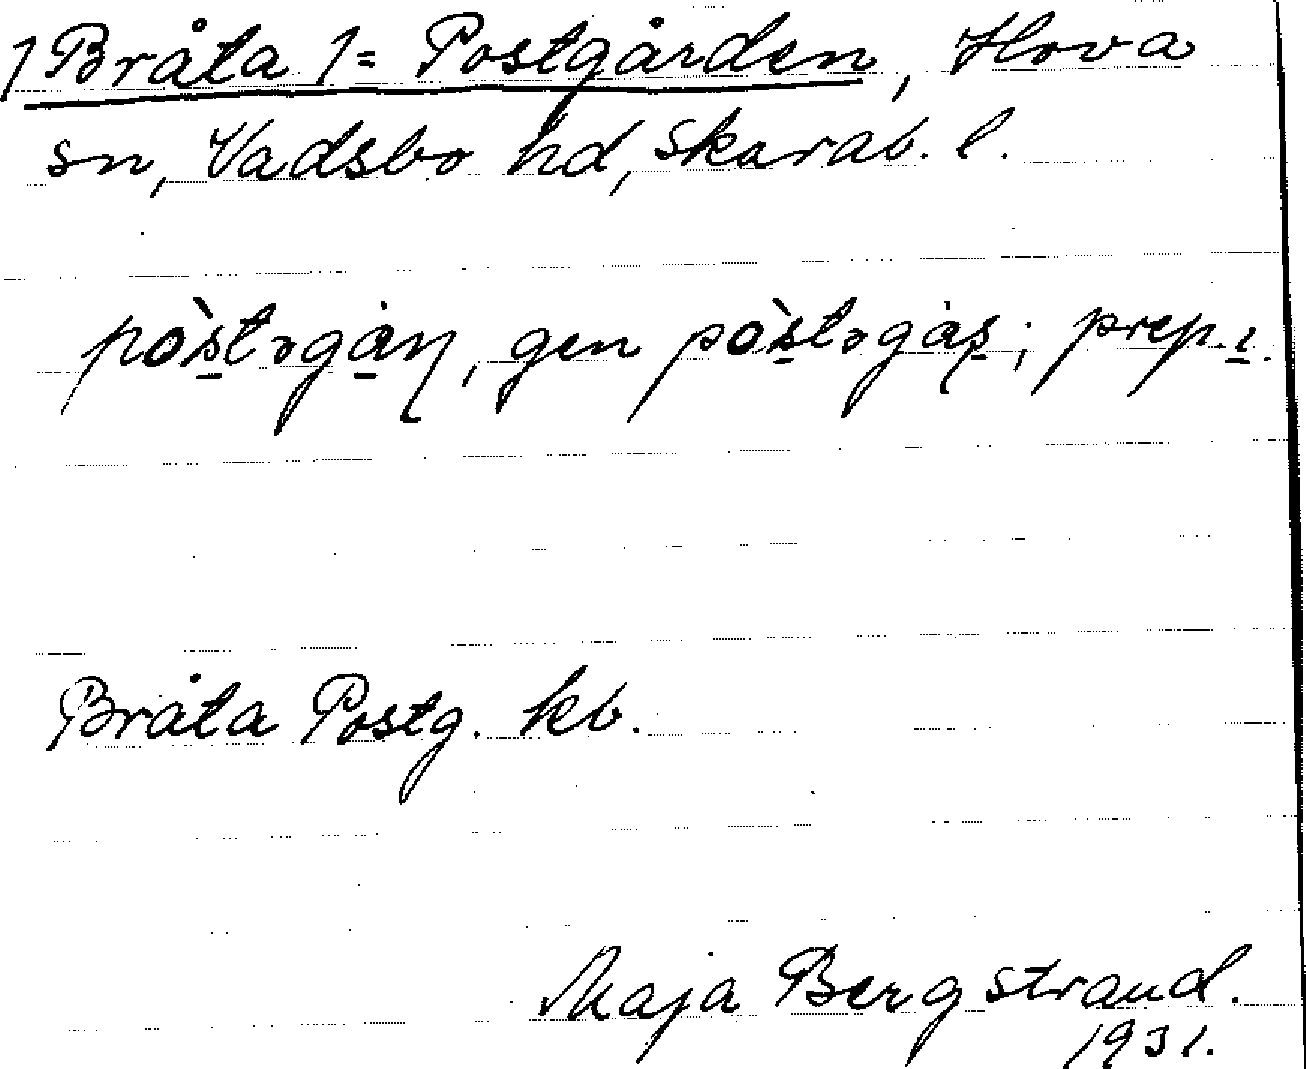 /Bråta /= Postgården, Hova
sn, Vadsbo hd, Skarab. l.
pòstogån, gen pòstogås; prep. ı.
Bråta Postg. kb.
Maja Bergstrand.
1931.